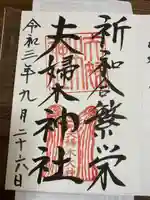 祈和合繁栄
夫婦木神社
令和三年九月二十六日